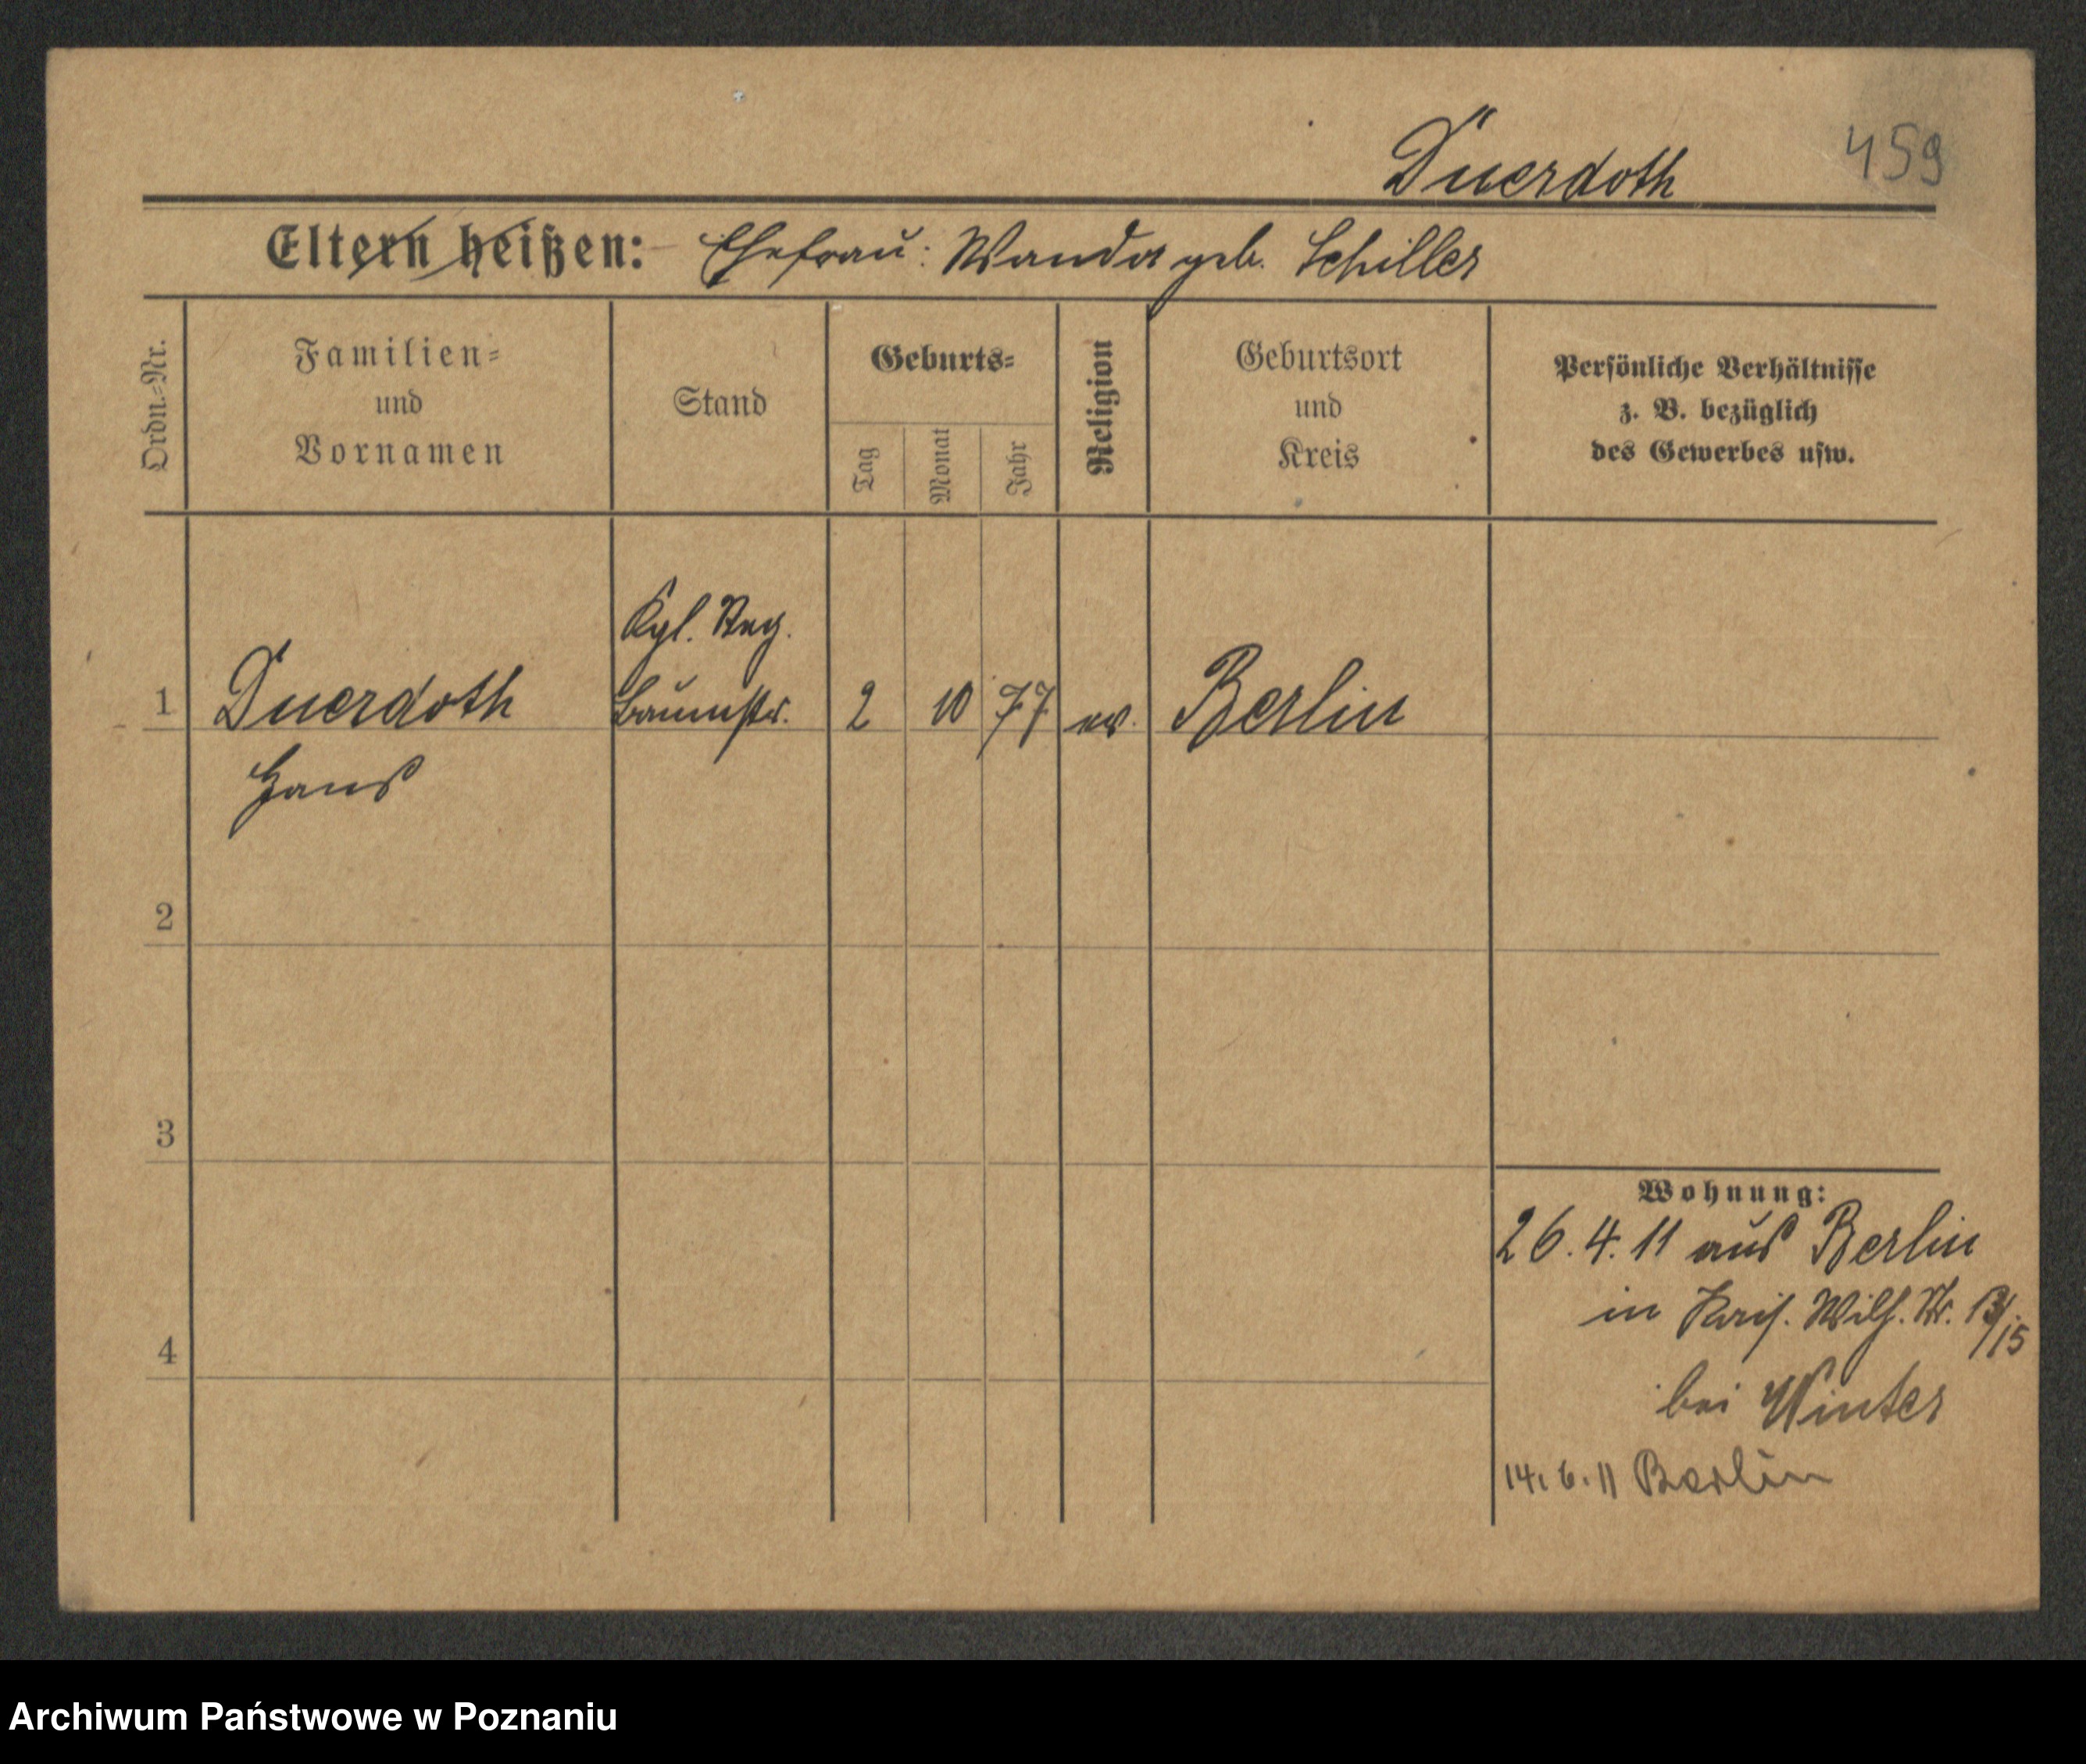 Duerdoth 459
Eltern heißen: Ehefrau: Wanda geb. Schiller
Ordn.-Nr.
Familien-
und
Vornamen
Stand
Geburts-
Tag
Monat
Jahr
Religion
Geburtsort
und
Kreis
Persönliche Verhältnisse
z. B. bezüglich
des Gewerbes usw.
Kgl. Reg.
1 Duerdoth Baumstr. 2 10 77 ev. Berlin
Hans
2
3
4
Wohnung:
26.4.11 aus Berlin
in Kais. Wilh. Str. /15
bei Winter
14.6.11 Berlin
Archiwum Państwowe w Poznaniu